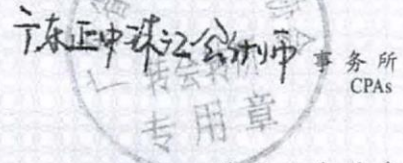 广东正中珠江会计师事务所
CPAs
转会
专用章